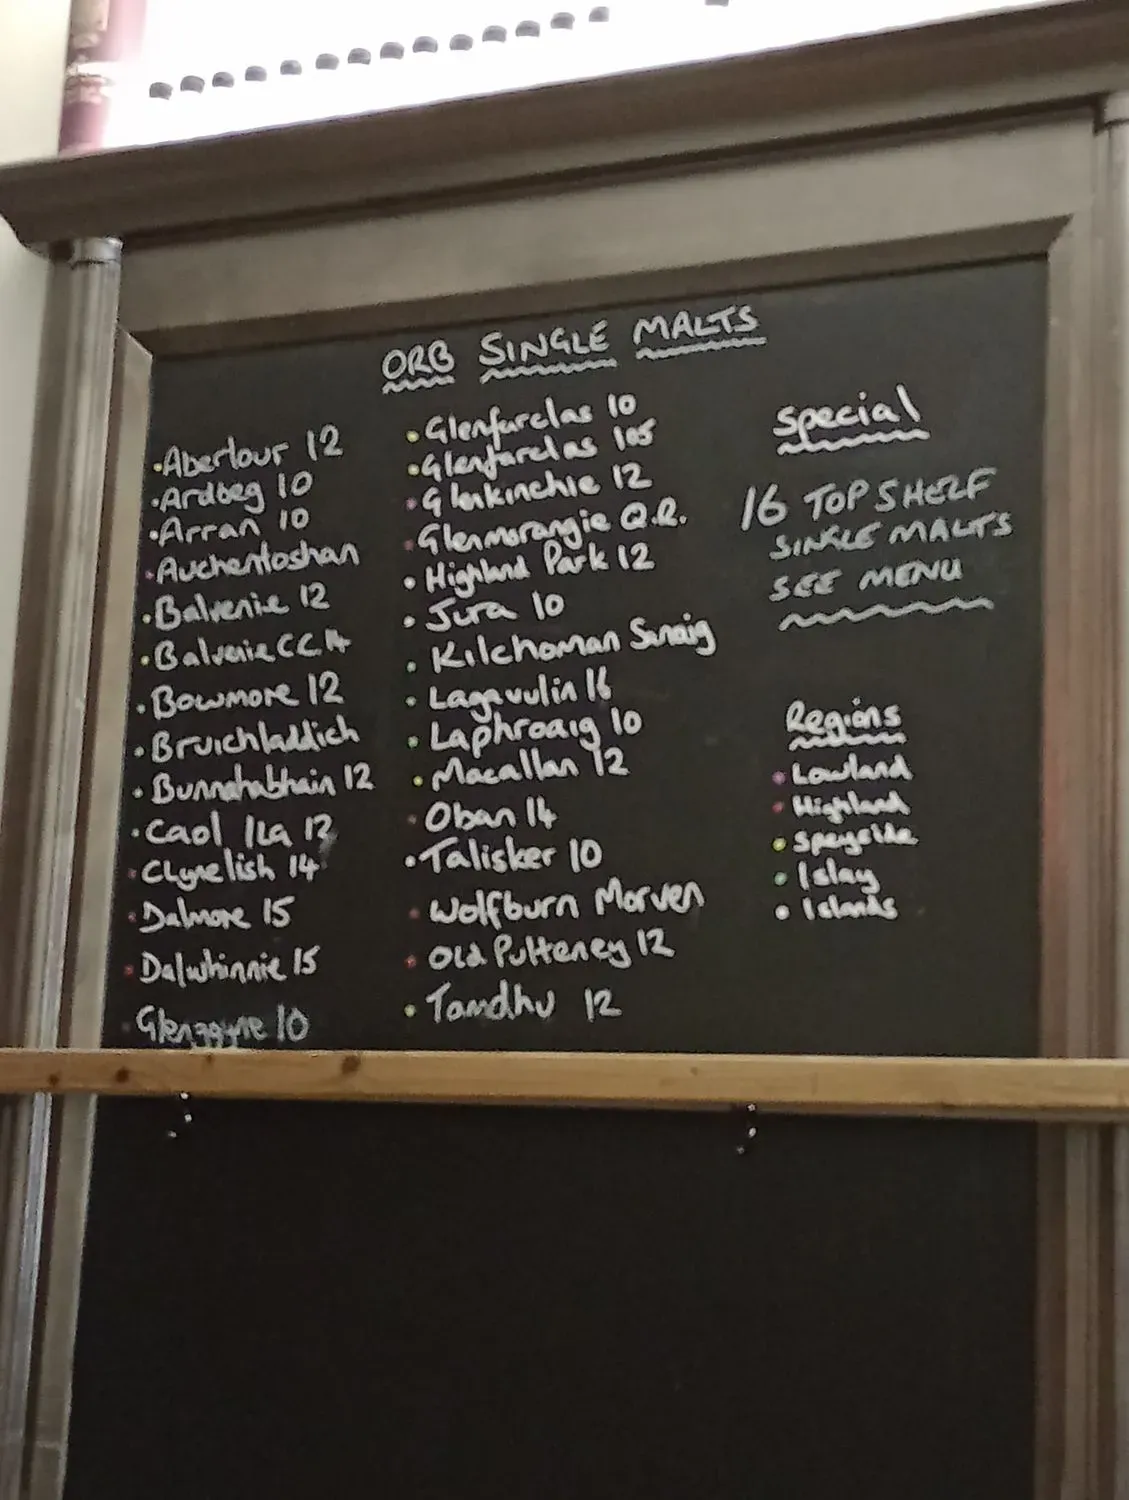 ORB SINGLE MALTS
Aberlour 12
Ardbeg 10
Arran 10
Auchentoshan
Balvenie 12
Balvenie CC 14
Bowmore 12
Bruichladdich
Bunnahabhain 12
Caol Ila 12
Clynelish 14
Dalmore 15
Dalwhinnie 15
Glengoyne 10
Glenfarclas 10
Glenfarclas 105
Glenkinchie 12
Glenmorangie Q.R.
Highland Park 12
Jura 10
Kilchoman Sanaig
Lagavulin 16
Laphroaig 10
Macallan 12
Oban 14
Talisker 10
Wolfburn Morven
Old Pulteney 12
Tamdhu 12
Special
16 TOP SHELF
SINGLE MALTS
SEE MENU
Regions
Lowland
Highland
Speyside
Islay
Islands